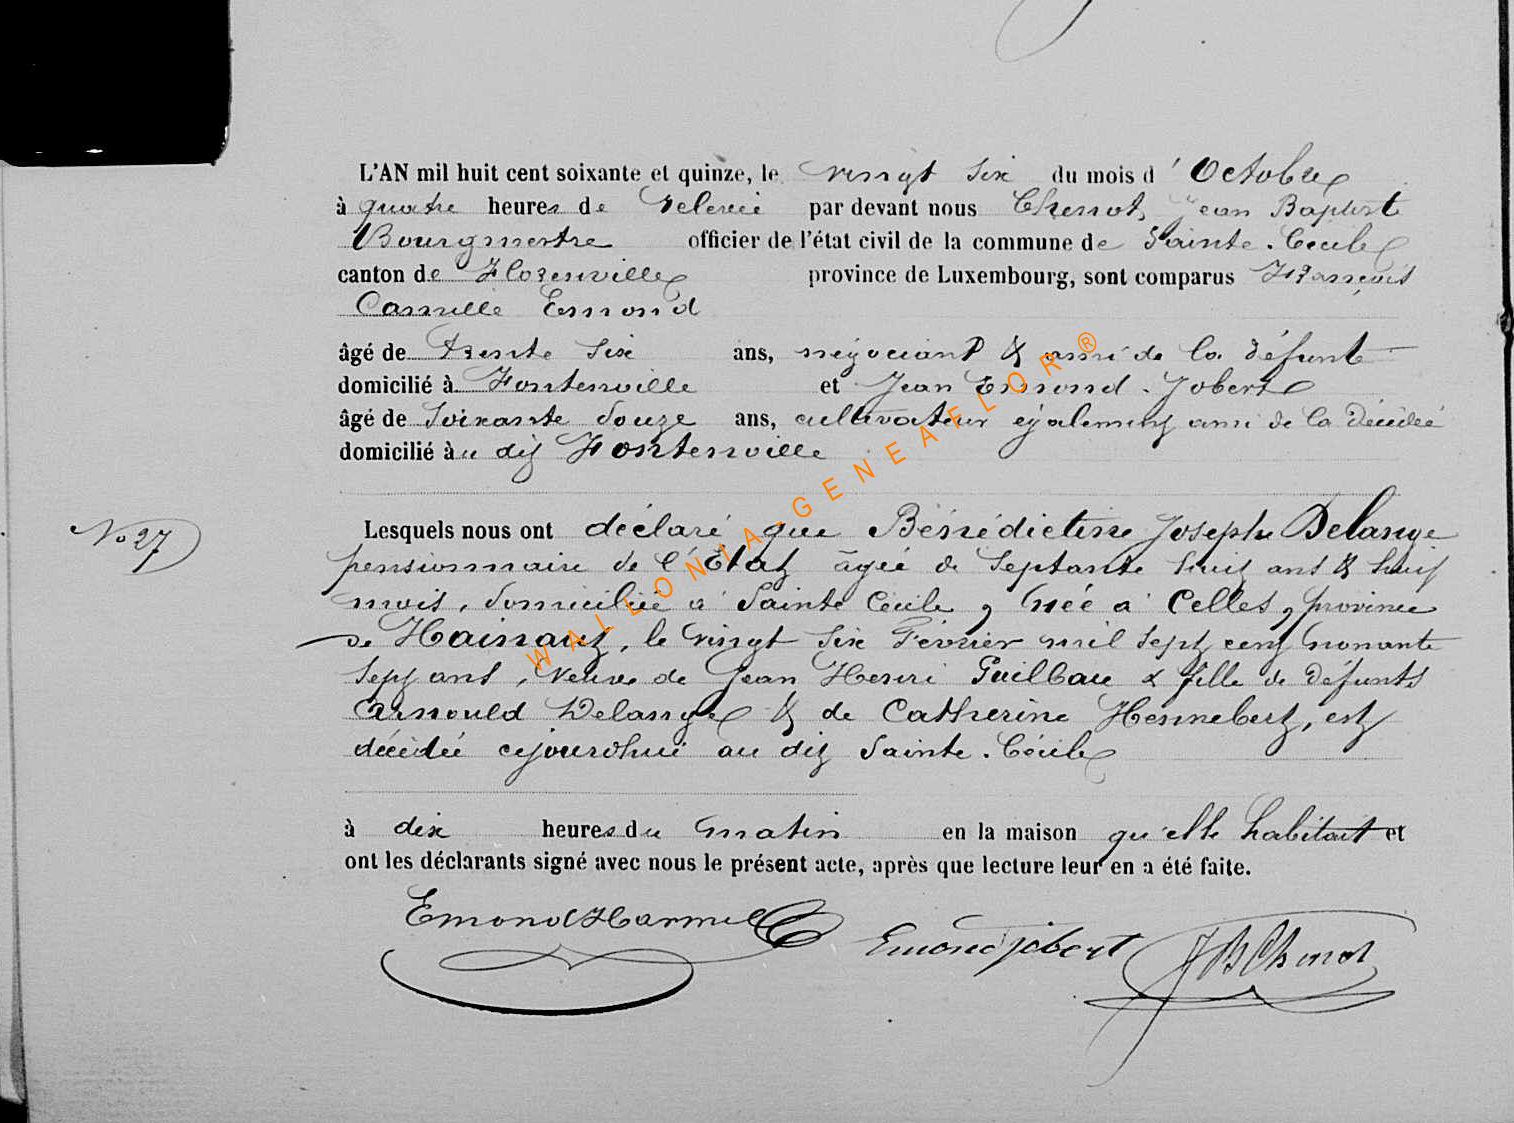 L'AN mil huit cent soixante et quinze, le vingt six du mois d'Octobre
à quatre heures de relevée par devant nous Chenot, Jean Baptist
Bourgmestre officier de l'état civil de la commune de Sainte-Cécile
canton de Florenville province de Luxembourg, sont comparus François
Camille Emond
âgé de trente six ans, négociant & ami de la défunte
domicilié à Fontenoille et Jean Emond-Jobert
âgé de Soixante douze ans, cultivateur également ami de la décédée
domicilié au dit Fontenoille
No 27
Lesquels nous ont déclaré que Bénédictine Josephe Delange
pensionnaire de l'État âgée de Septante huit ans & huit
mois, domiciliée à Sainte Cécile, née à Celles, province
de Hainaut, le vingt six Février mil sept cent nonante
sept ans, veuve de Jean Henri Guilbau & fille de défunts
Arnould Delange & de Catherine Hennebert, est
décédée cejourdhui au dit Sainte-Cécile
à dix heures du matin en la maison qu'elle habitait et
ont les déclarants signé avec nous le présent acte, après que lecture leur en a été faite.
EmondHarmel Emond jobert JBChenot
WALLONIA-GENEAFLOR®